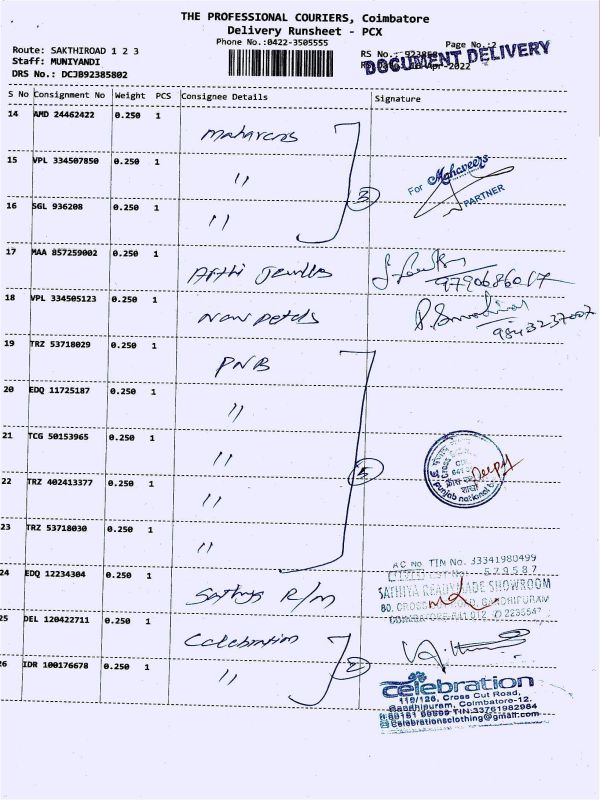 THE PROFESSIONAL COURIERS, Coimbatore
Delivery Runsheet - PCX
Phone No.:0422-3505555
Page No.:2
Route: SAKTHIROAD 1 2 3
Staff: MUNIYANDI
DRS No.: DCJB92385802
RS No.:
DOCUMENT DELIVERY
-Apr-2022
S No Consignment No Weight PCS Consignee Details Signature
14 AMD 24462422 0.250 1
15 VPL 334507850 0.250 1 "
For Mahaveers
PARTNER
3
16 SGL 936208 0.250 1 "
17 MAA 857259002 0.250 1
9790686017
18 VPL 334505123 0.250 1
9843237007
19 TRZ 53718029 0.250 1 PNB
20 EDQ 11725187 0.250 1 "
21 TCG 50153965 0.250 1 "
5
punjab national
22 TRZ 402413377 0.250 1 "
23 TRZ 53718030 0.250 1 "
AC No. TIN No. 33341980499
579587
24 EDQ 12234304 0.250 1 Sathya R/m
SATHIYA READYMADE SHOWROOM
80, CROSS ROAD, GANDHIPURAM
COIMBATORE-641 012
25 DEL 120422711 0.250 1 Celebration
2
26 IDR 100176678 0.250 1 "
celebration
119/126, Cross Cut Road,
Gandhipuram, Coimbatore-12.
TIN:33761982984
Celebrationsclothing@gmail.com